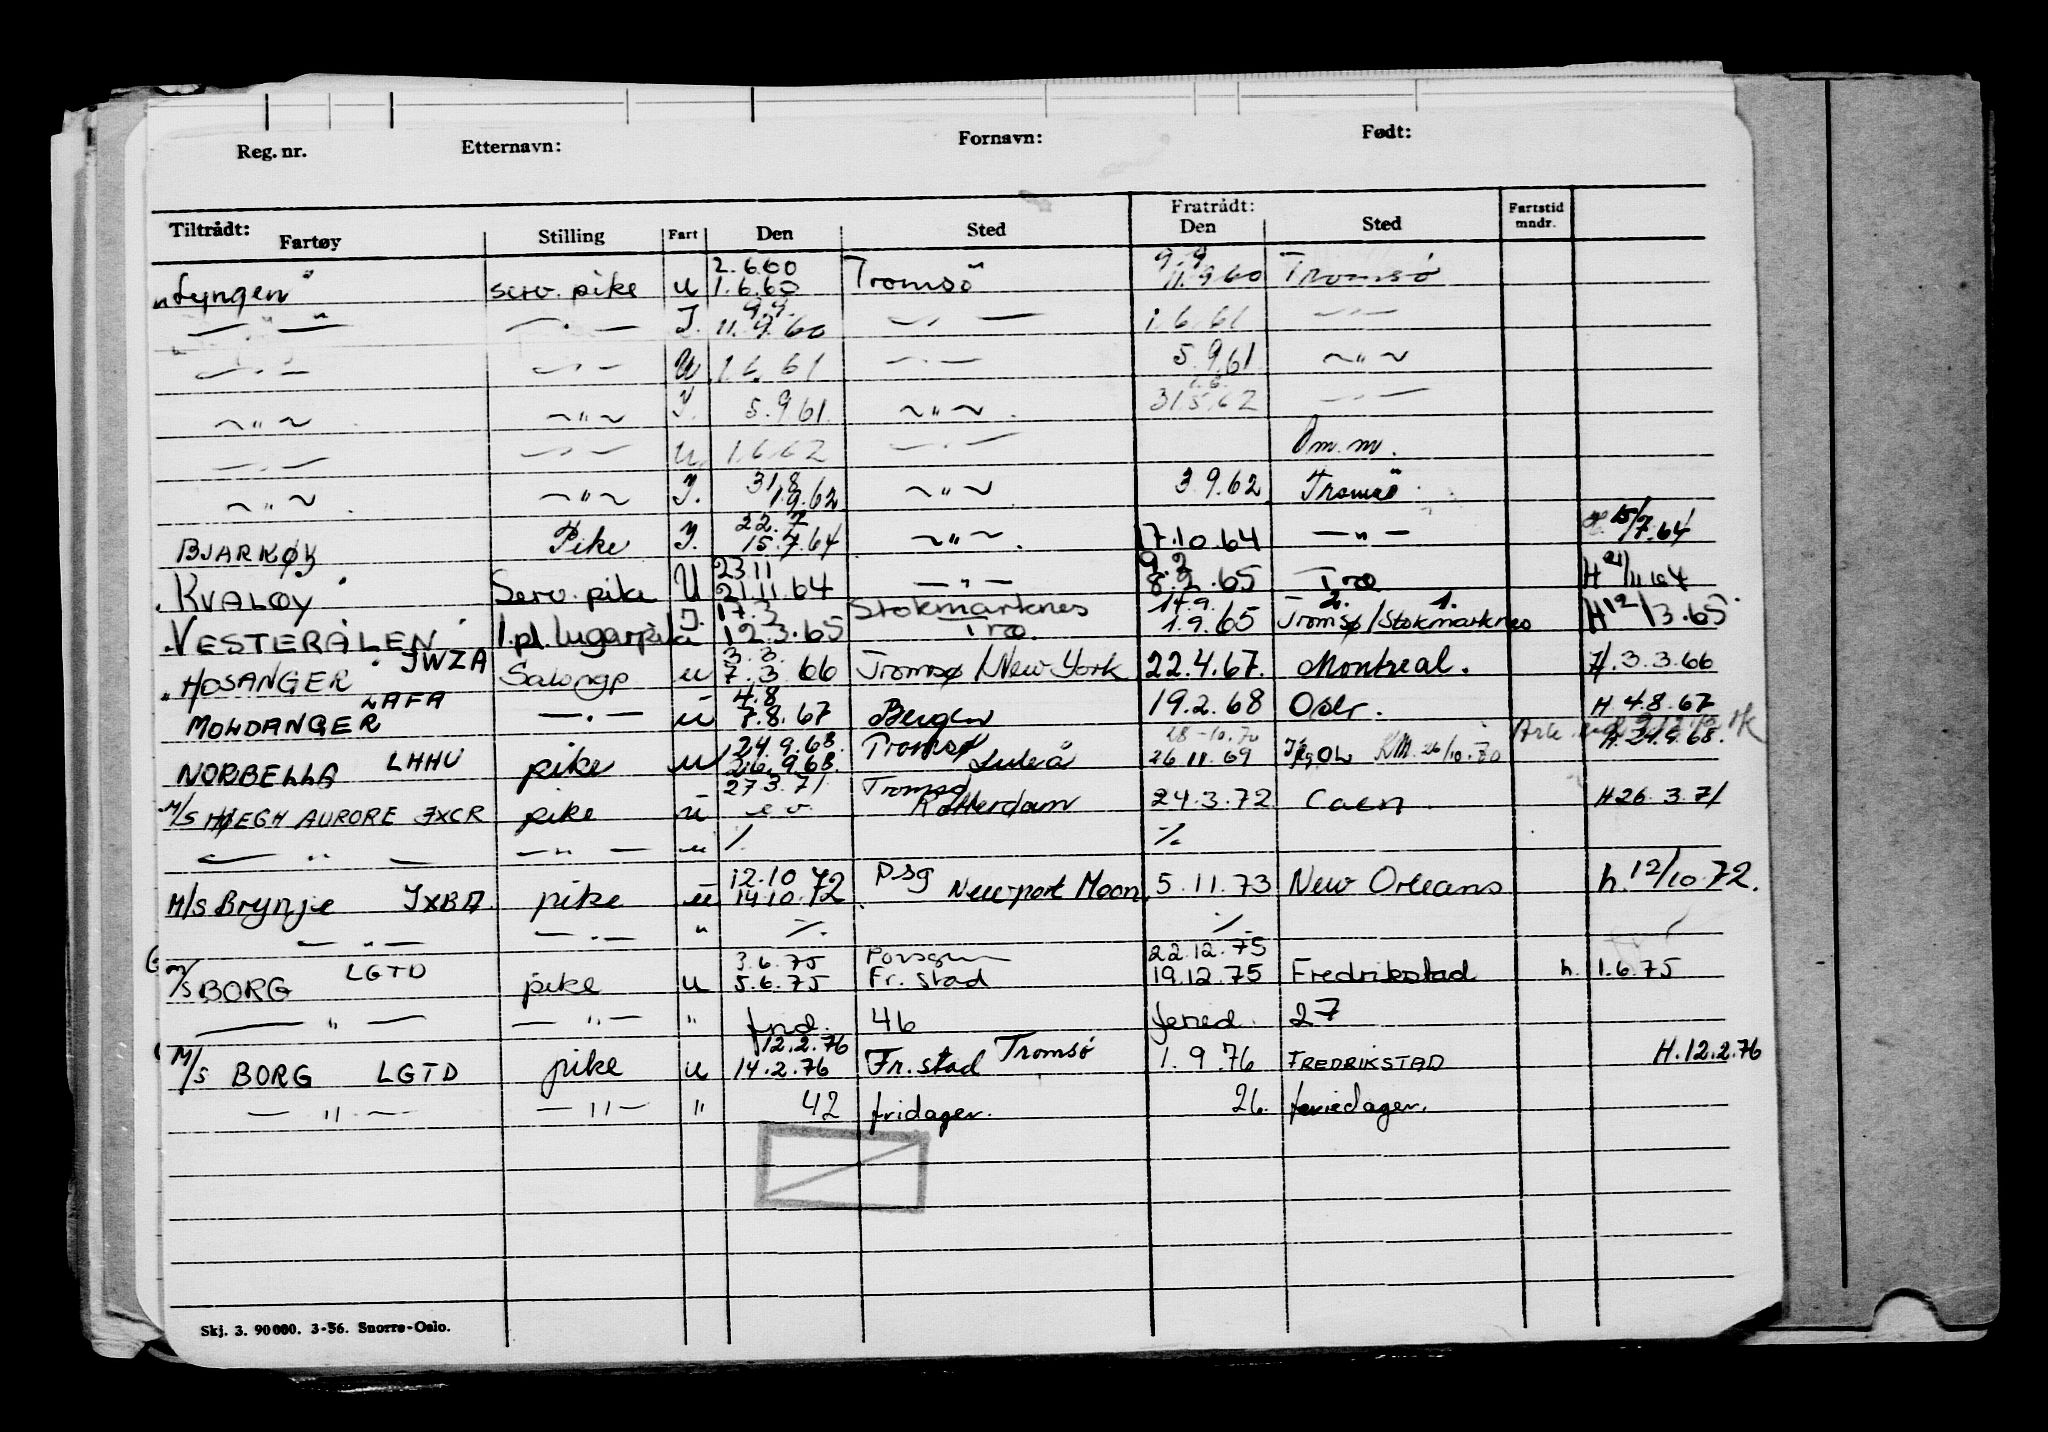 Reg. nr. Etternavn: Fornavn: Født:
Tiltrådt: Fartøy Stilling Fart Den Sted Fratrådt: Den Sted Fartstid mndr.
2.6.60 9.9
"Lyngen" serv. pike u 1.6.60 Tromsö 11.9.60 Tromsö
9.9.
— " — — " — I. 11.9.60 — " — 1.6.61 — " —
— " — — " — U 1.6.61 — " — 5.9.61 ~ " ~
1.6.
~ " ~ ~ " ~ I. 5.9.61. ~ " ~ . 31.5.62 — " —
— " — — " — U. 1.6.62 — " — Om.m.
31.8
~ " ~ ~ " ~ I. 1.9.62 ~ " ~ 3.9.62 Tromsö
22.7
BJARKØY Pike I. 15.7.64 ~ " ~ . 17.10.64 — " — 15/7.64
23.11 9.2
KVALØY Serv. pike U 21.11.64 — " — 8.2.65 Trø H 21/11 64
I. 17.3 Stokmarknes 14.9. 2. 1.
"VESTERÅLEN" 1.pl. lugarpike 12.3.65 Trø. 1.9.65 Tromsø/Stokmarknes H 12/3.65
JWZA 3.3.
"HOSANGER" Salongp u 7.3.66 Tromsø/New York 22.4.67. Montreal. H. 3.3.66
LAFA 4.8
MOLDANGER — " — u 7.8.67 Bergen 19.2.68 Oslo. H. 4.8.67
24.9.68. Tromsø 28-10.70
NORBELLA LHHU pike u 26.9.68. Luleå 26.11.69 KM. 26/10.70 H. 24.9.68.
27.3.71 Tromsø
M/S HØEGH AURORE JXCR pike u e.v. Rotterdam 24.3.72 Caen. H 26.3.71
— " — — " — u ·/. ·/.
12.10 72 Psg
M/S Brynje JXBA. pike u 14.10.72 Newport Moon. 5.11.73 New Orleans h. 12/10.72.
— " — — " — " ·/. ·/.
LGTD 3.6.75 Porsgrunn 22.12.75
M/S BORG pike u 5.6.75 Fr. stad 19.12.75 Fredrikstad h. 1.6.75
— " — — " — " frid. 46 feried. 27
12.2.76 Tromsö
M/S BORG LGTD pike u 14.2.76 Fr. stad 1.9.76 FREDRIKSTAD H. 12.2.76
— " — — " — " 42 fridager. 26. feriedager.
Skj. 3. 90 000. 3-56. Snorre-Oslo.